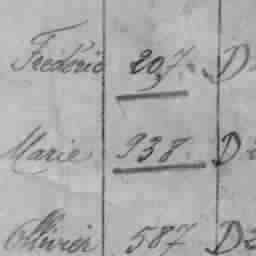 Frédéric 207. D
Marie 938. D2
Ollivier 587 D2